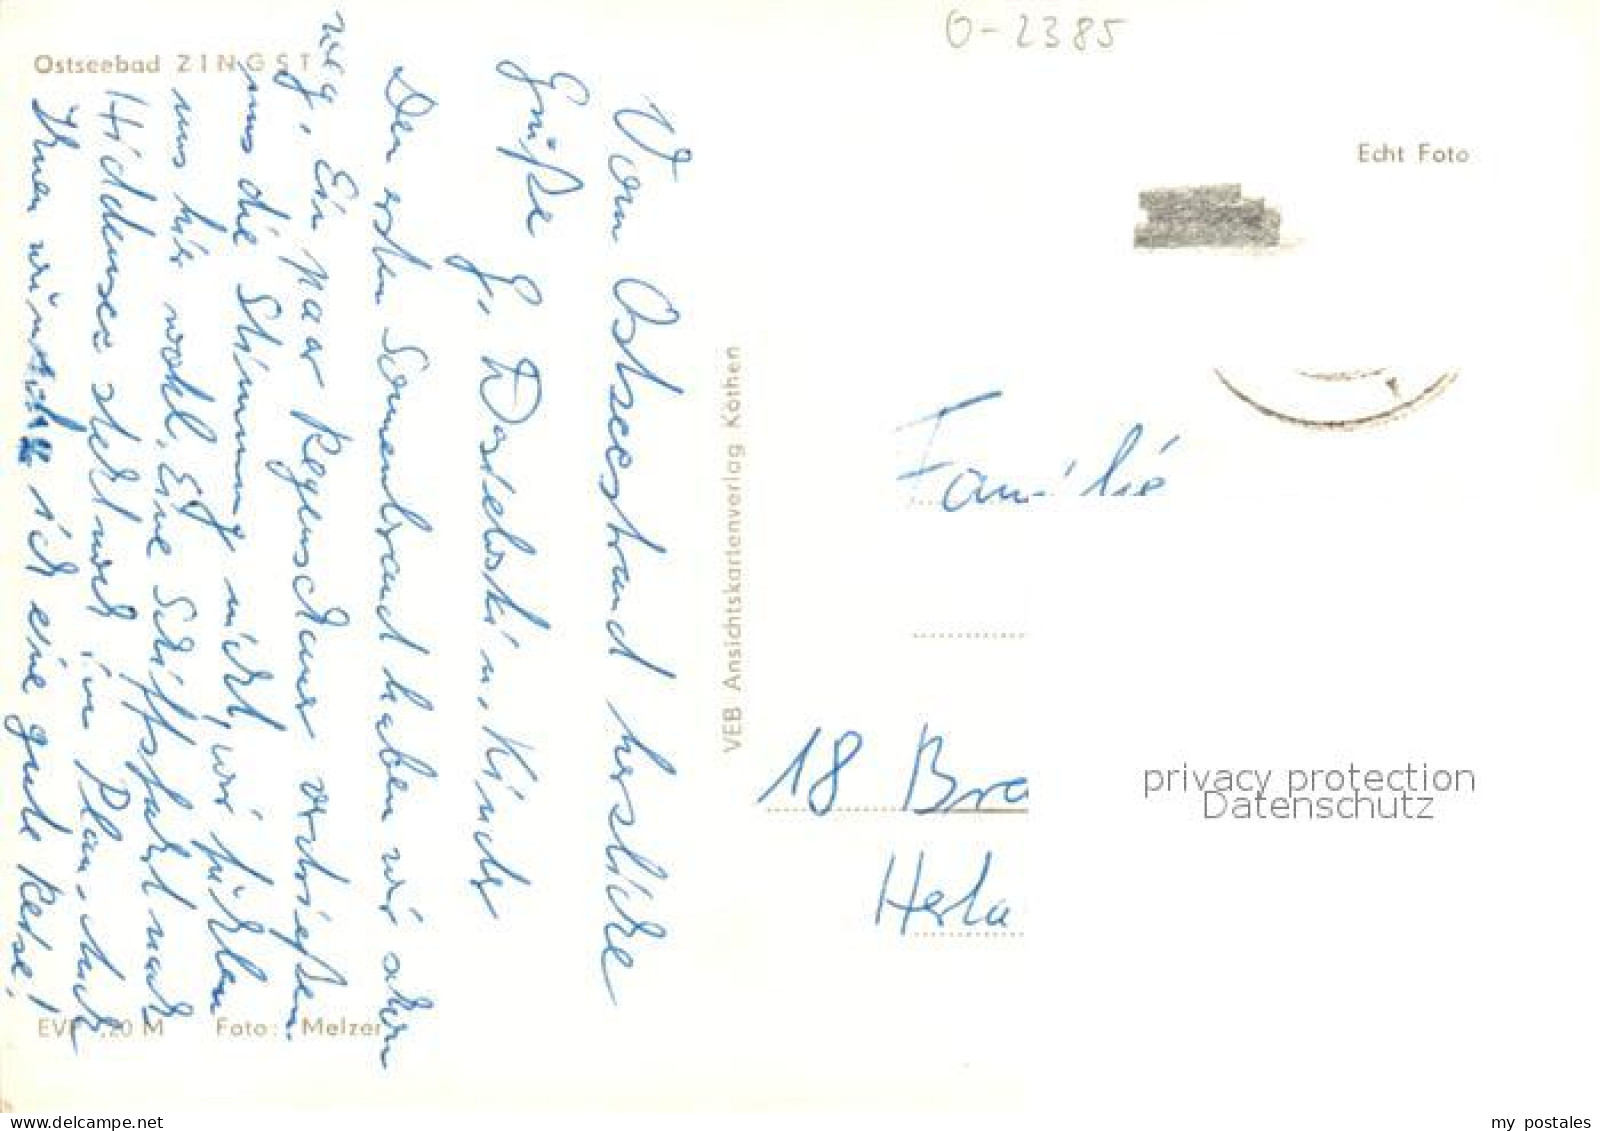 Ostseebad ZINGST
O-2385
Echt Foto
Vom Ostseestrand herzliche
Grüße
Kinder
Den ersten Sonnenbrand haben wir schon
weg. Ein paar Regenschauer
uns die Stimmung nicht, wir fühlen
uns hier wohl. Eine Schiffsfahrt nach
Hiddensee steht noch im Plan. Auch
Ihnen wünschen ich eine gute Reise!
VEB Ansichtskartenverlag Köthen
Familie
18 Bra
EVP .20 M Foto: Melzer
privacy protection
Datenschutz
www.delcampe.net
my_postales